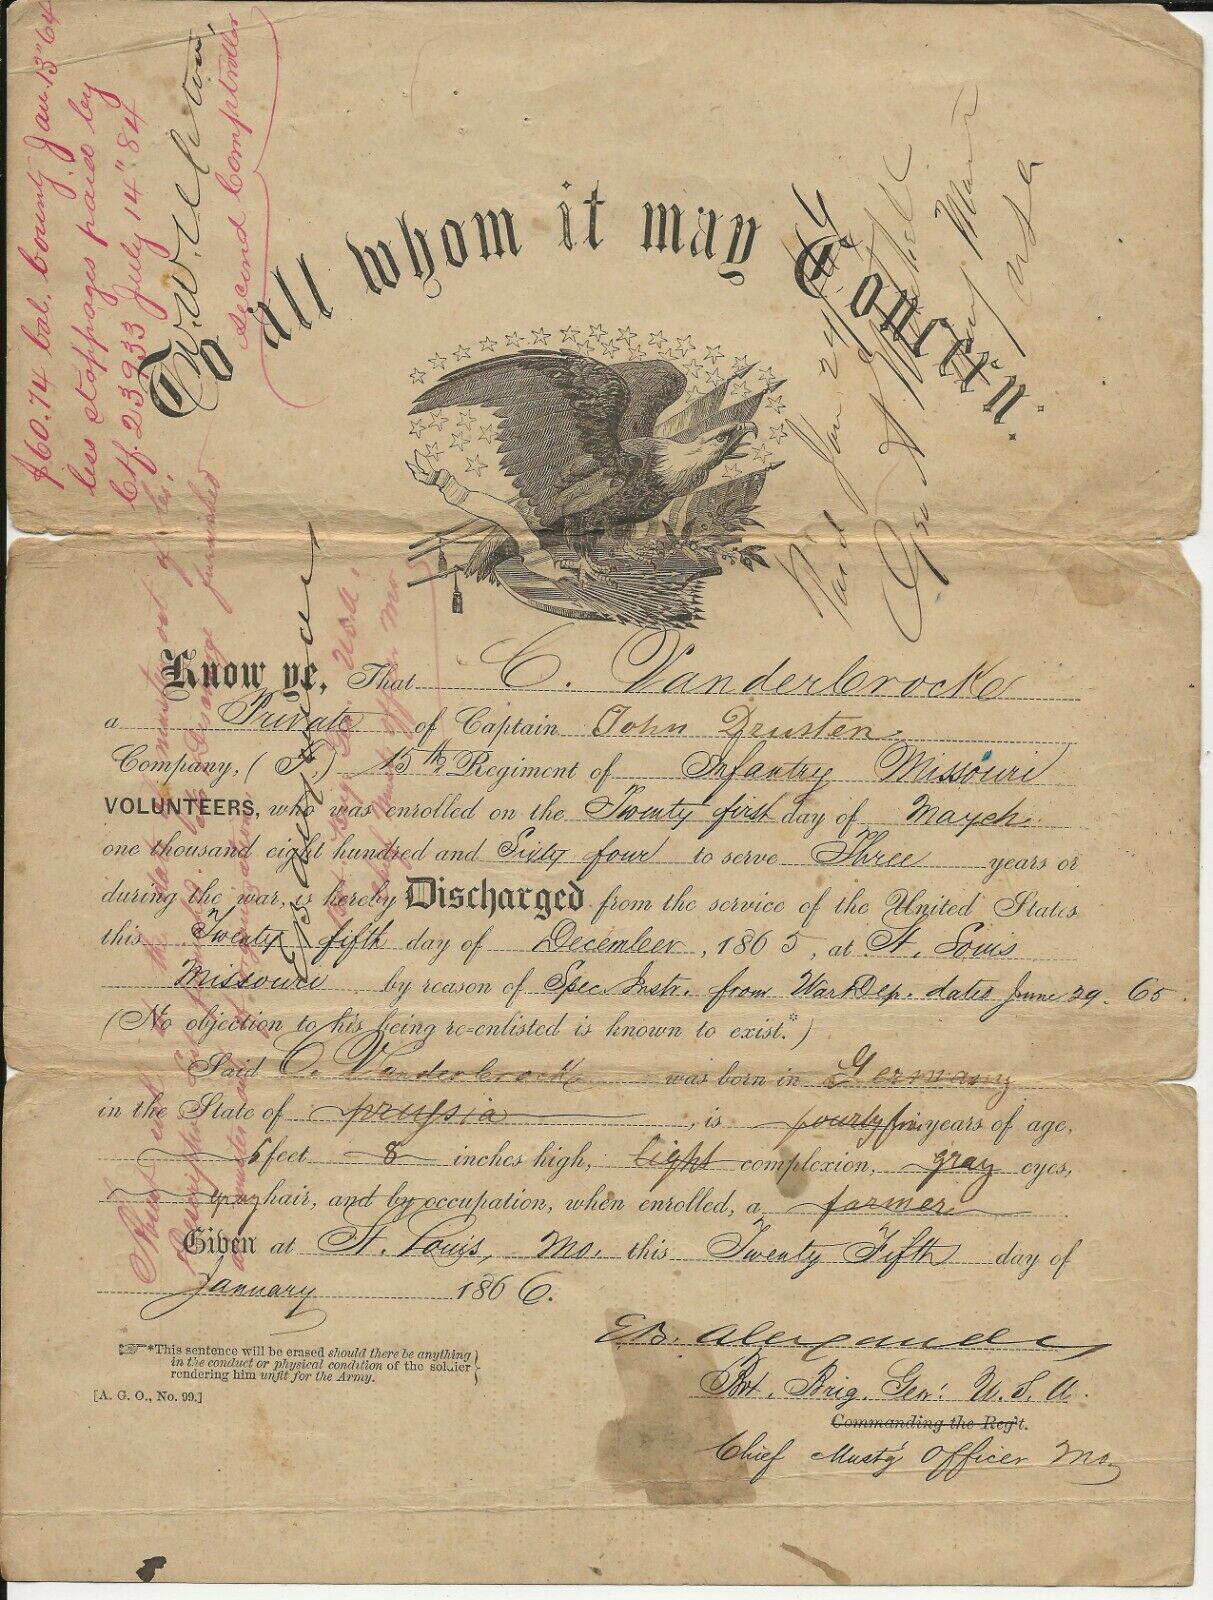 $60.74 bal. bounty Jan. 13" 64
less stoppages paid by
Ctf. 23933 July 14" 84
Second Comptroller
To all whom it may Concern.
Paid Jan 24
Paymaster
USA
Know ye, That C. Vanderbrock
a Private of Captain John Drusten
Company, (F.) 15th Regiment of Infantry Missouri
VOLUNTEERS, who was enrolled on the Twenty first day of March
one thousand eight hundred and Sixty four to serve Three years or
during the war, is hereby Discharged from the service of the United States
this Twenty fifth day of December, 1865, at St. Louis
Missouri by reason of Spec. Instr. from War Dep. dates June 29. 65.
(No objection to his being re-enlisted is known to exist.*)
Said C. Vanderbrock was born in Germany
in the State of prussia, is years of age,
5 feet 8 inches high, light complexion, gray eyes,
gray hair, and by occupation, when enrolled, a farmer
Given at St. Louis, Mo. this Twenty Fifth day of
January 1866.
*This sentence will be erased should there be anything
in the conduct or physical condition of the soldier
rendering him unfit for the Army.
[A. G. O., No. 99.]
E.B. Alexander
Bvt. Brig. Gen'. U.S.A.
Commanding the Reg't.
Chief Must'g Officer Mo.